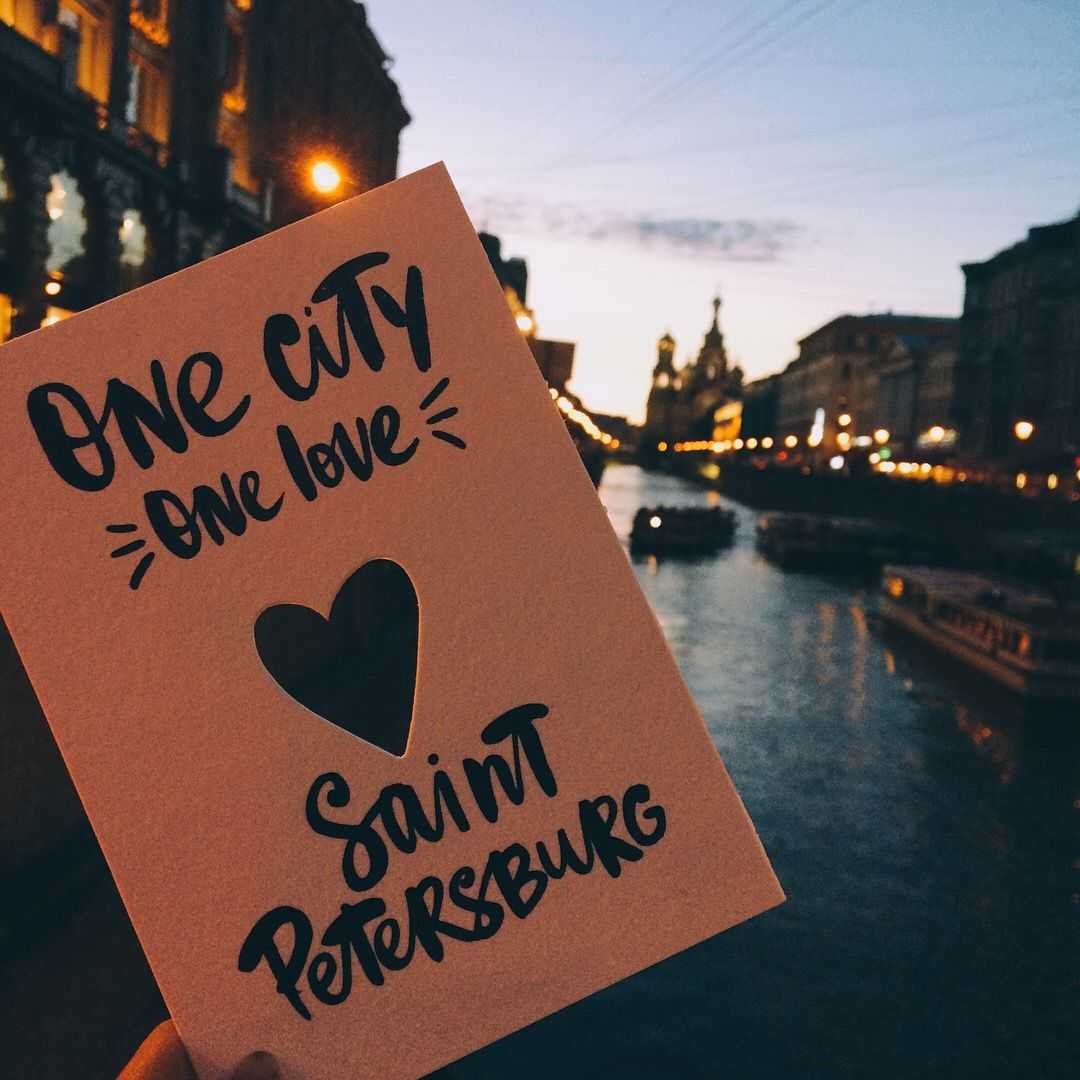 ONE CiTY
ONE love
Saint
PETERSBURG